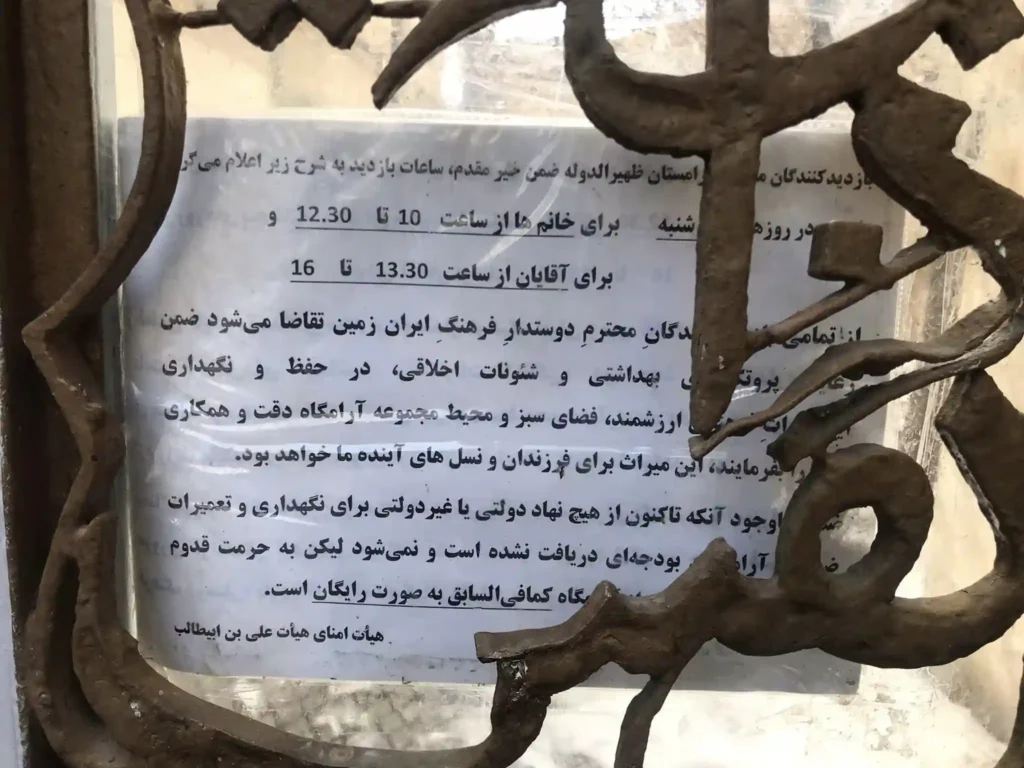 بازدیدکنندگان ظهیرالدوله ضمن خیر مقدم، ساعات بازدید به شرح زیر اعلام می‌گر
در شنبه برای خانم ها از ساعت 10 تا 12.30 و
برای آقایان از ساعت 13.30 تا 16
از تمامی محترمِ دوستدارِ فرهنگِ ایران زمین تقاضا می‌شود ضمن
بهداشتی و شئونات اخلاقی، در حفظ و نگهداری
ارزشمند، فضای سبز و محیط مجموعه آرامگاه دقت و همکاری
بفرمایند، این میراث برای فرزندان و نسل های آینده ما خواهد بود.
آنکه تاکنون از هیچ نهاد دولتی یا غیردولتی برای نگهداری و تعمیرات
بودجه‌ای دریافت نشده است و نمی‌شود لیکن به حرمت قدوم
کمافی‌السابق به صورت رایگان است.
هیأت امنای هیأت علی بن ابیطالب